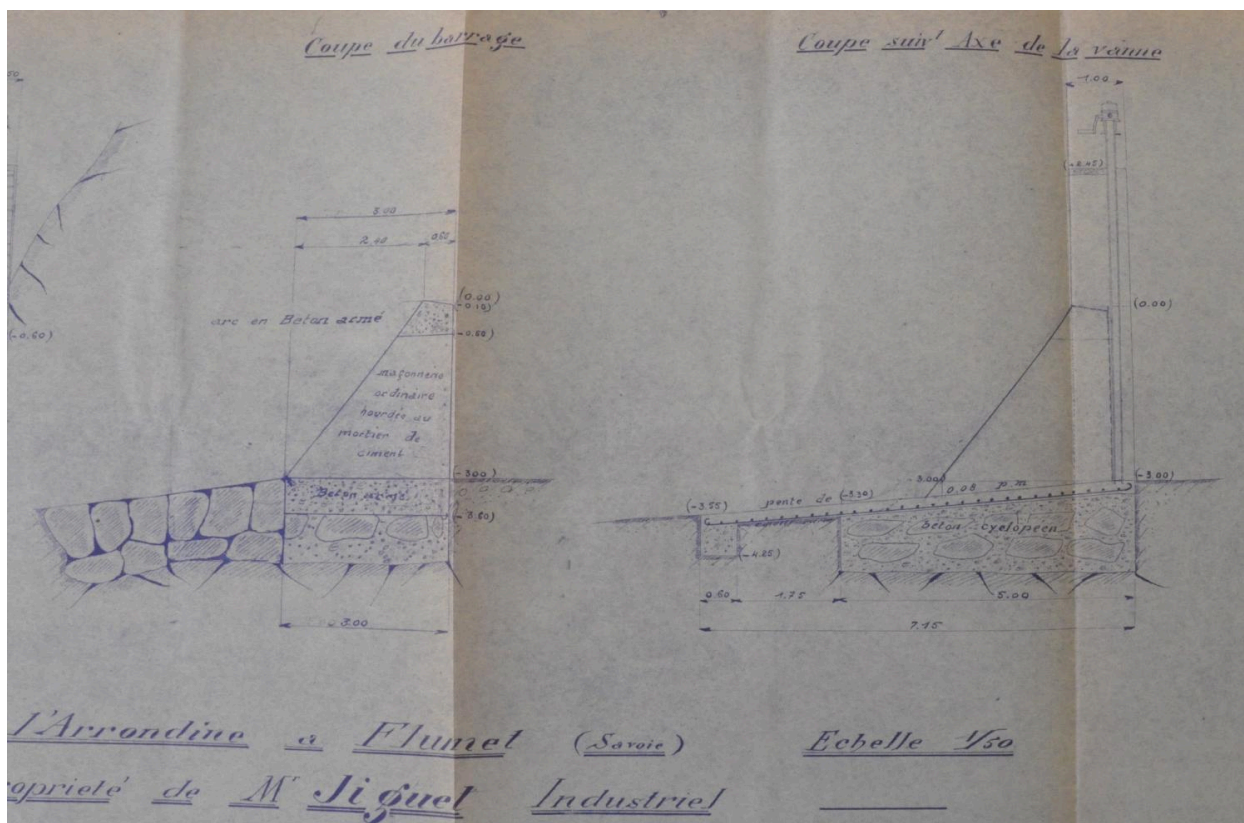 Coupe du barrage
Coupe suivt Axe de la vanne
1.00
3.00
2.40
0.60
(0.00)
-0.10)
arc en Béton armé
-0.60)
(-0.60)
maçonnerie
ordinaire
hourdée au
mortier de
ciment
(-3.00)
Béton armé
-3.60)
3.00
(0.00)
-3.00)
(-3.00)
0.08 p.m
(-3.55)
pente de
(-3.30)
Béton cyclopéen
(-4.25)
0.60
1.75
5.00
7.15
l'Arrondine a Flumet (Savoie) Echelle 1/50
ropriété de Mr Jiguet Industriel